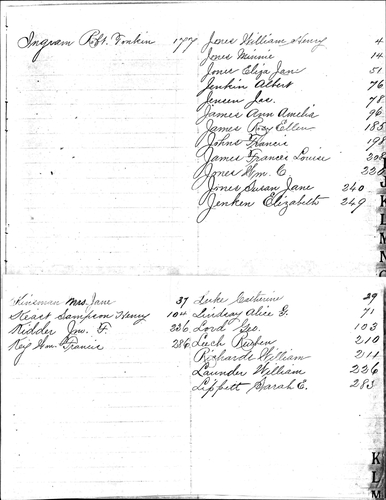 Ingram Robt. Tonkin 177
Jones William Henry 4
Jones Minnie 14
Jones Eliza Jane 51
Jenkin Albert 76
Jensen Jas. 78
James Ann Amelia 96
James Rosy Ellen 185
Johns Francis 198
James Frances Louise 208
Jones Wm. C. 220
Jones Susan Jane 240
Jenken Elizabeth 249
J
K
L
M
N
Kinsman Mrs. Jane 37
Keast Sampson Henry 104
Kidder Jno. F. 226
Wm. Francis 286
Luke Catherine 29
Lindsay Alice G. 71
Lord Geo. 103
Leech Reuben 210
Richards William 211
Launder William 226
Lippett Sarah E. 283
K
L
M